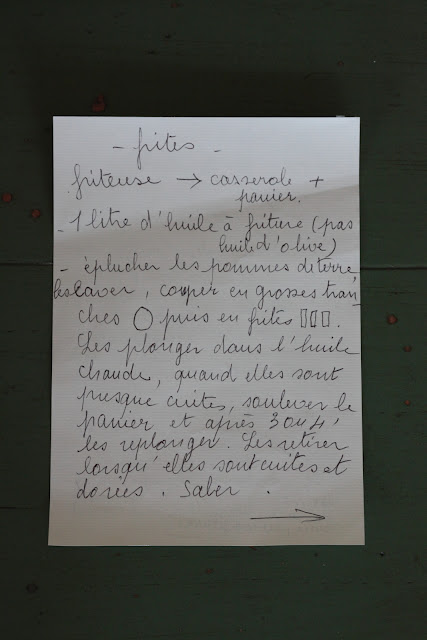 - frites -
friteuse → casserole +
panier.
- 1 litre d'huile à friture (pas
huile d'olive)
- éplucher les pommes de terre,
les laver, couper en grosses tran
ches O puis en frites ▯▯▯.
Les plonger dans l'huile
chaude, quand elles sont
presque cuites, soulever le
panier et après 3 ou 4'
les replonger. Les retirer
lorsqu'elles sont cuites et
dorées. Saler.
→